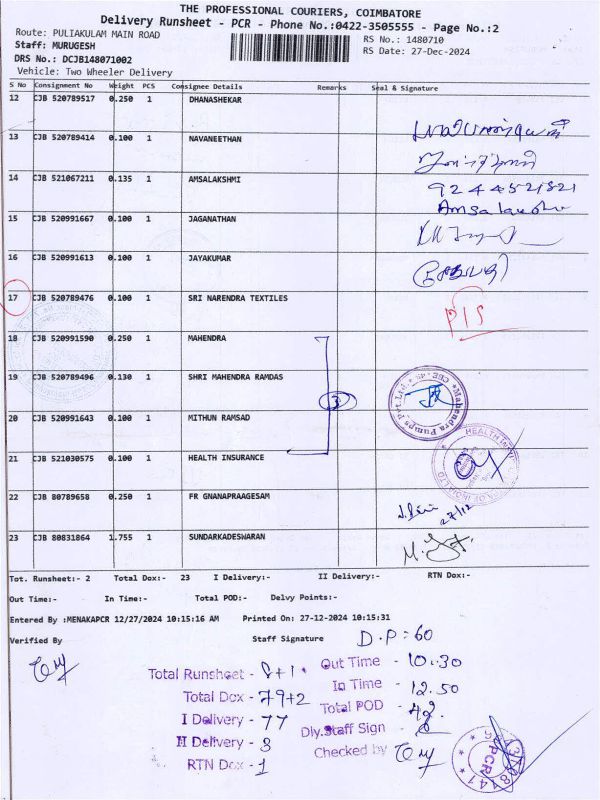 THE PROFESSIONAL COURIERS, COIMBATORE
Delivery Runsheet - PCR - Phone No.:0422-3505555 - Page No.:2
Route: PULIAKULAM MAIN ROAD RS No.: 1480710
Staff: MURUGESH RS Date: 27-Dec-2024
DRS No.: DCJB148071002
Vehicle: Two Wheeler Delivery
S No Consignment No Weight PCS Consignee Details Remarks Seal & Signature
12 CJB 520789517 0.250 1 DHANASHEKAR
13 CJB 520789414 0.100 1 NAVANEETHAN
14 CJB 521067211 0.135 1 AMSALAKSHMI
9244521521
15 CJB 520991667 0.100 1 JAGANATHAN
16 CJB 520991613 0.100 1 JAYAKUMAR
17 CJB 520789476 0.100 1 SRI NARENDRA TEXTILES
18 CJB 520991590 0.250 1 MAHENDRA
19 CJB 520789496 0.130 1 SHRI MAHENDRA RAMDAS
3
Mahendra Pumps Pvt.Ltd. CBE
20 CJB 520991643 0.100 1 MITHUN RAMSAD
21 CJB 521030575 0.100 1 HEALTH INSURANCE
22 CJB 80789658 0.250 1 FR GNANAPRAAGESAM
27/12
23 CJB 80831864 1.755 1 SUNDARKADESWARAN
Tot. Runsheet:- 2 Total Dox:- 23 I Delivery:- II Delivery:- RTN Dox:-
Out Time:- In Time:- Total POD:- Delvy Points:-
Entered By :MENAKAPCR 12/27/2024 10:15:16 AM Printed On: 27-12-2024 10:15:31
Verified By Staff Signature D.P=60
Total Runsheet - 8+1 Out Time - 10.30
Total Dox - 79+2 In Time - 12.50
I Delivery - 77 Total POD - 42
II Delivery - 3 Dly.Staff Sign -
RTN Dox - 1 Checked by
PCR